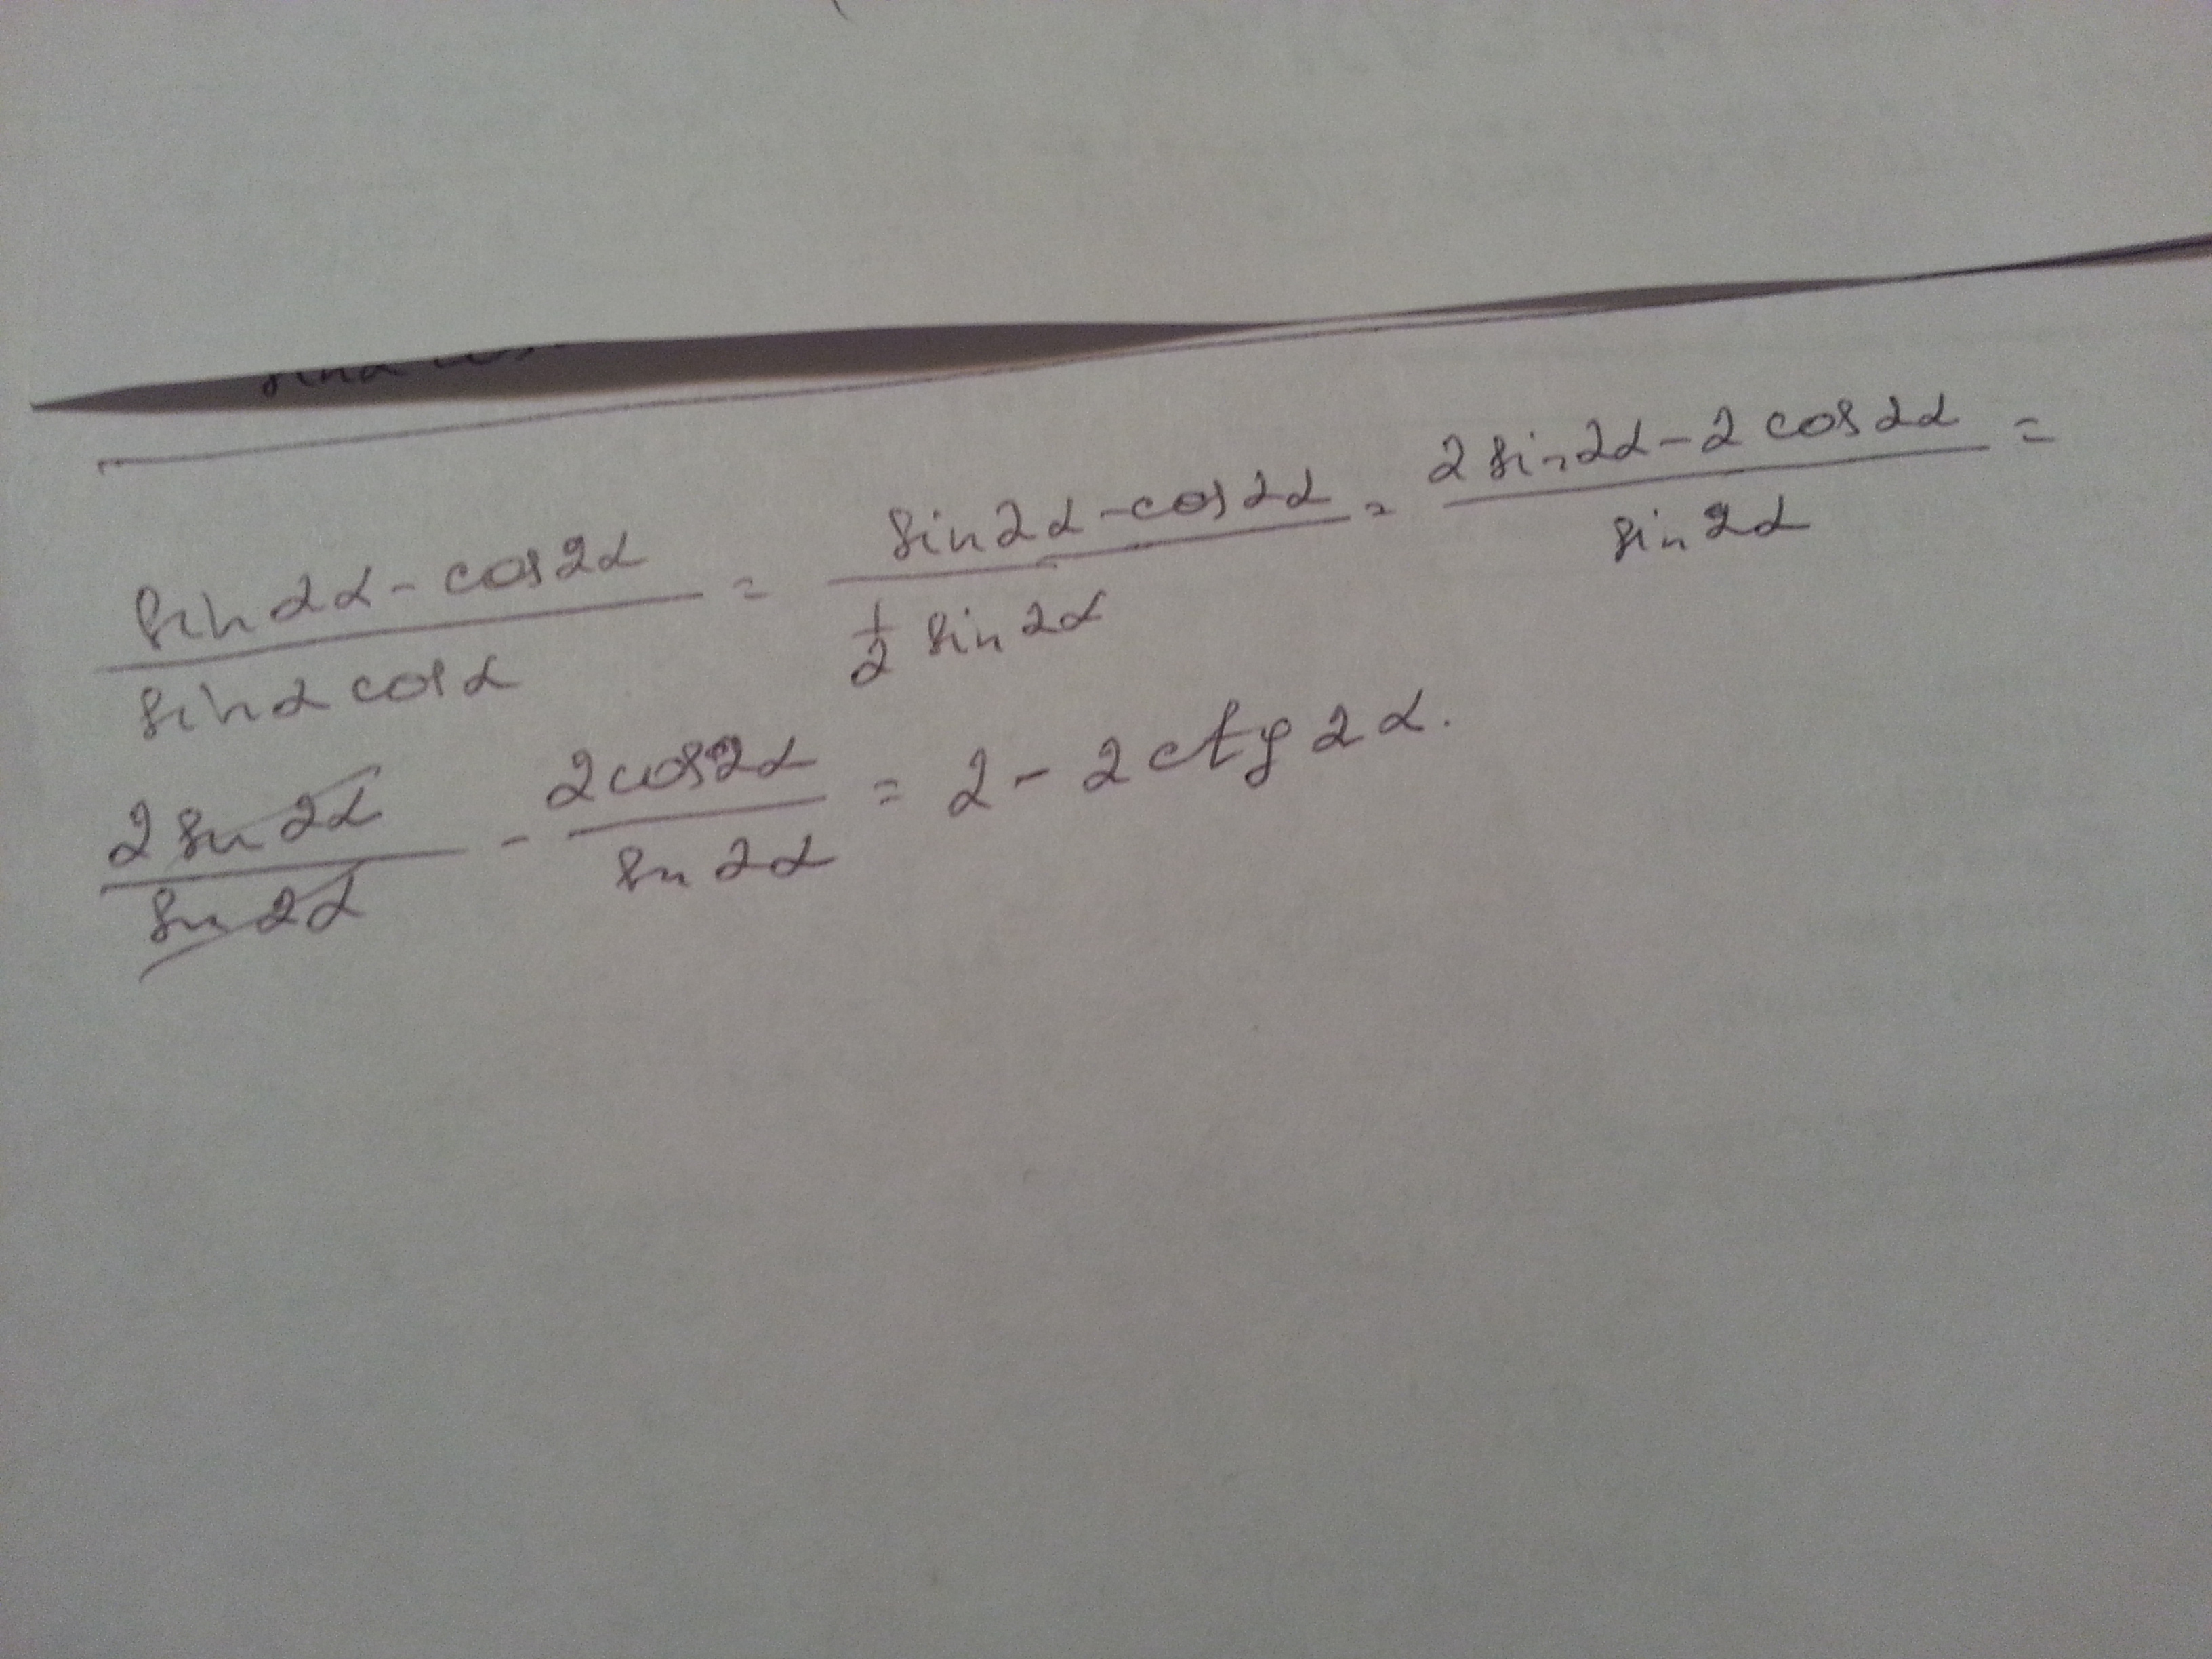 sinα cos
(sin2α - cos2α)/(sinα cosα) = (sin2α - cos2α)/(1/2 sin2α) = (2 sin2α - 2 cos2α)/(sin2α) =
(2 sin2α)/(sin2α) - (2cos2α)/(sin2α) = 2 - 2ctg2α.